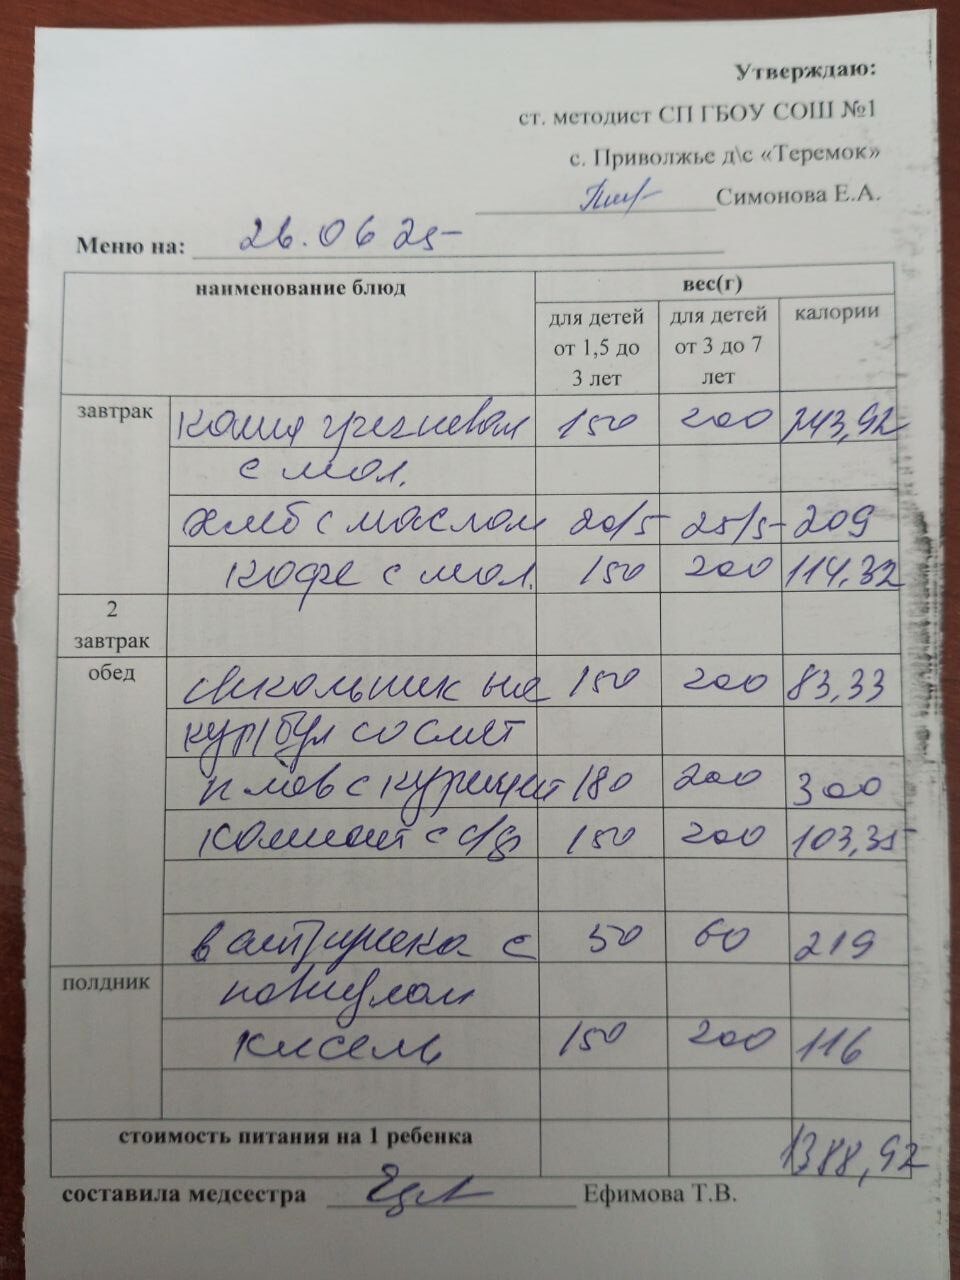 Утверждаю:
ст. методист СП ГБОУ СОШ №1
с. Приволжье д\с «Теремок»
Симонова Е.А.
Меню на: 26.06 25
наименование блюд
вес(г)
для детей от 1,5 до 3 лет
для детей от 3 до 7 лет
калории
завтрак
каша гречневая 150 200 243,92
с мол.
хлеб с маслом 20/5 25/5 209
кофе с мол. 150 200 114,32
2 завтрак
обед
свекольник на 150 200 83,33
кур бул со смет
плов с курицей 180 200 300
компот с с/ф 150 200 103,35
ватрушка с 50 60 219
полдник
повидлом
кисель 150 200 116
стоимость питания на 1 ребенка 1388,92
составила медсестра Ефимова Т.В.